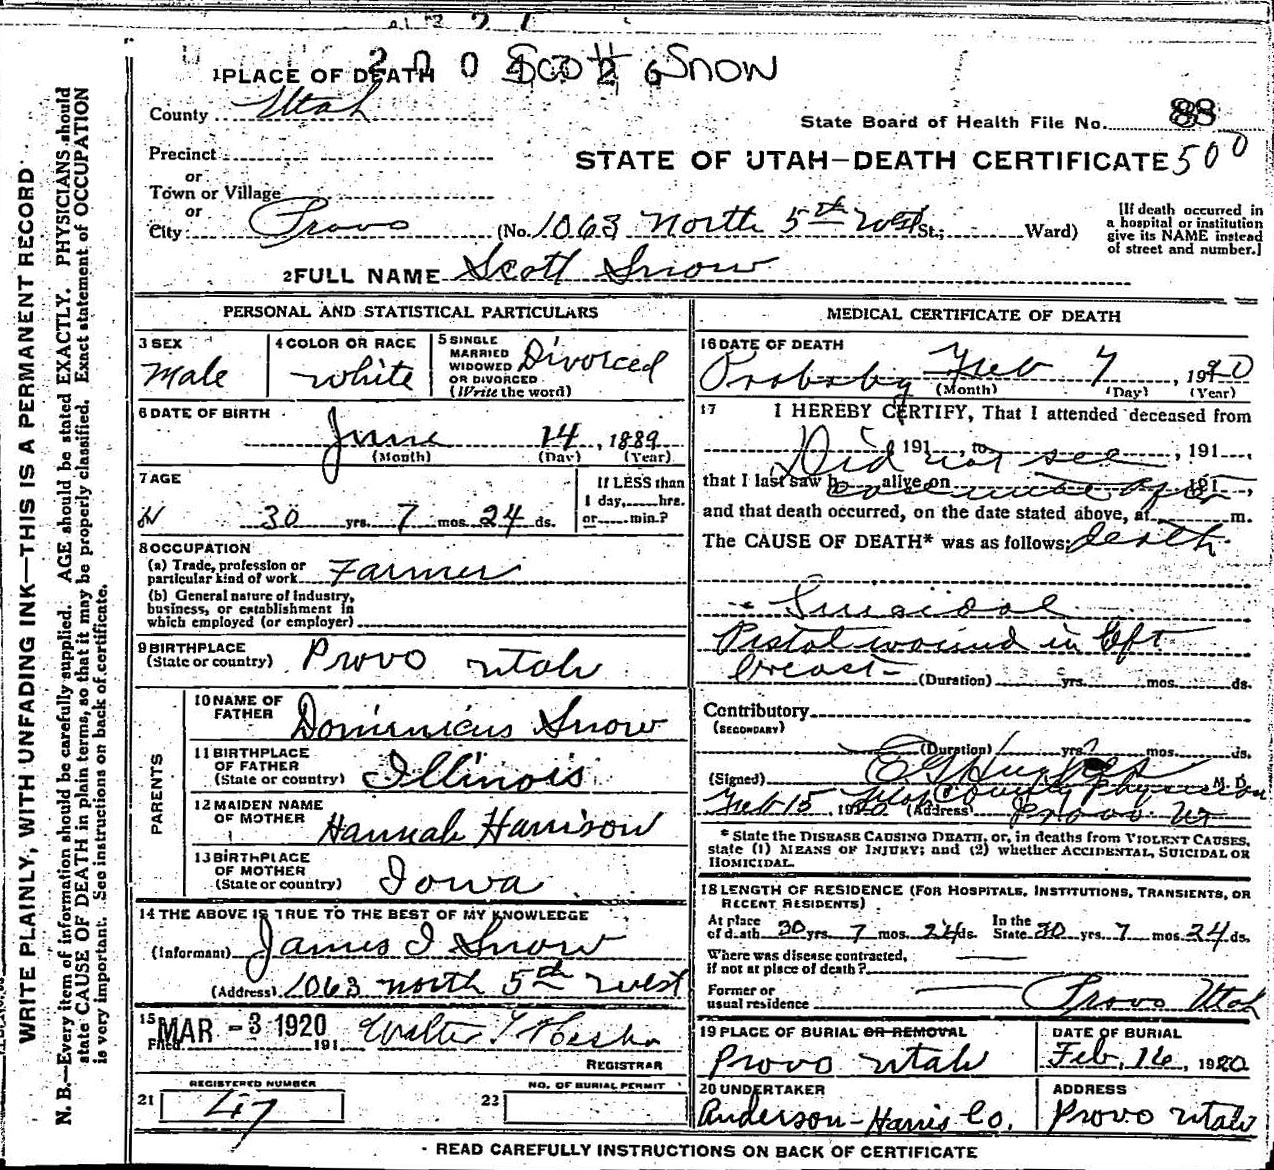 Scott Snow
1 PLACE OF DEATH
County Utah
State Board of Health File No. 88
Precinct
STATE OF UTAH—DEATH CERTIFICATE 500
or
Town or Village
or
City Provo (No. 1063 North 5th West St.; Ward)
[If death occurred in
a hospital or institution
give its NAME instead
of street and number.]
2 FULL NAME Scott Snow
PERSONAL AND STATISTICAL PARTICULARS
3 SEX
Male
4 COLOR OR RACE
White
5 SINGLE
MARRIED
WIDOWED
OR DIVORCED
(Write the word)
Divorced
6 DATE OF BIRTH
June 14, 1889
(Month) (Day) (Year)
7 AGE
30 yrs. 7 mos. 24 ds.
If LESS than
1 day, hrs.
or min.?
8 OCCUPATION
(a) Trade, profession or
particular kind of work Farmer
(b) General nature of industry,
business, or establishment in
which employed (or employer)
9 BIRTHPLACE
(State or country) Provo Utah
PARENTS
10 NAME OF
FATHER Dominicus Snow
11 BIRTHPLACE
OF FATHER
(State or country) Illinois
12 MAIDEN NAME
OF MOTHER Hannah Harrison
13 BIRTHPLACE
OF MOTHER
(State or country) Iowa
14 THE ABOVE IS TRUE TO THE BEST OF MY KNOWLEDGE
(Informant) James I Snow
(Address) 1063 north 5th West
15
Filed MAR -3 1920 191 Walter T
REGISTRAR
REGISTERED NUMBER
21 47
NO. OF BURIAL PERMIT
22
MEDICAL CERTIFICATE OF DEATH
16 DATE OF DEATH
Probably Feb 7, 1920
(Month) (Day) (Year)
17 I HEREBY CERTIFY, That I attended deceased from
Did not see
, 191 , to , 191 ,
that I last saw h alive on 191 ,
case until after
and that death occurred, on the date stated above, at m.
The CAUSE OF DEATH* was as follows: death
Suicidal
Pistol wound in left
breast
(Duration) yrs. mos. ds.
Contributory
(SECONDARY)
(Duration) yrs. mos. ds.
(Signed) E G Hughes M. D.
County Physician
Feb 15, 1920 (Address) Provo Ut
* State the DISEASE CAUSING DEATH, or, in deaths from VIOLENT CAUSES,
state (1) MEANS OF INJURY; and (2) whether ACCIDENTAL, SUICIDAL OR
HOMICIDAL.
18 LENGTH OF RESIDENCE (FOR HOSPITALS, INSTITUTIONS, TRANSIENTS, OR
RECENT RESIDENTS)
At place
of death 30 yrs. 7 mos. 24 ds.
In the
State 30 yrs. 7 mos. 24 ds.
Where was disease contracted,
if not at place of death?
Former or
usual residence Provo Utah
19 PLACE OF BURIAL OR REMOVAL
Provo Utah
DATE OF BURIAL
Feb. 16, 1920
20 UNDERTAKER
Anderson-Harris Co.
ADDRESS
Provo Utah
READ CAREFULLY INSTRUCTIONS ON BACK OF CERTIFICATE
WRITE PLAINLY, WITH UNFADING INK—THIS IS A PERMANENT RECORD
N. B.—Every item of information should be carefully supplied. AGE should be stated EXACTLY. PHYSICIANS should
state CAUSE OF DEATH in plain terms, so that it may be properly classified. Exact statement of OCCUPATION
is very important. See instructions on back of certificate.